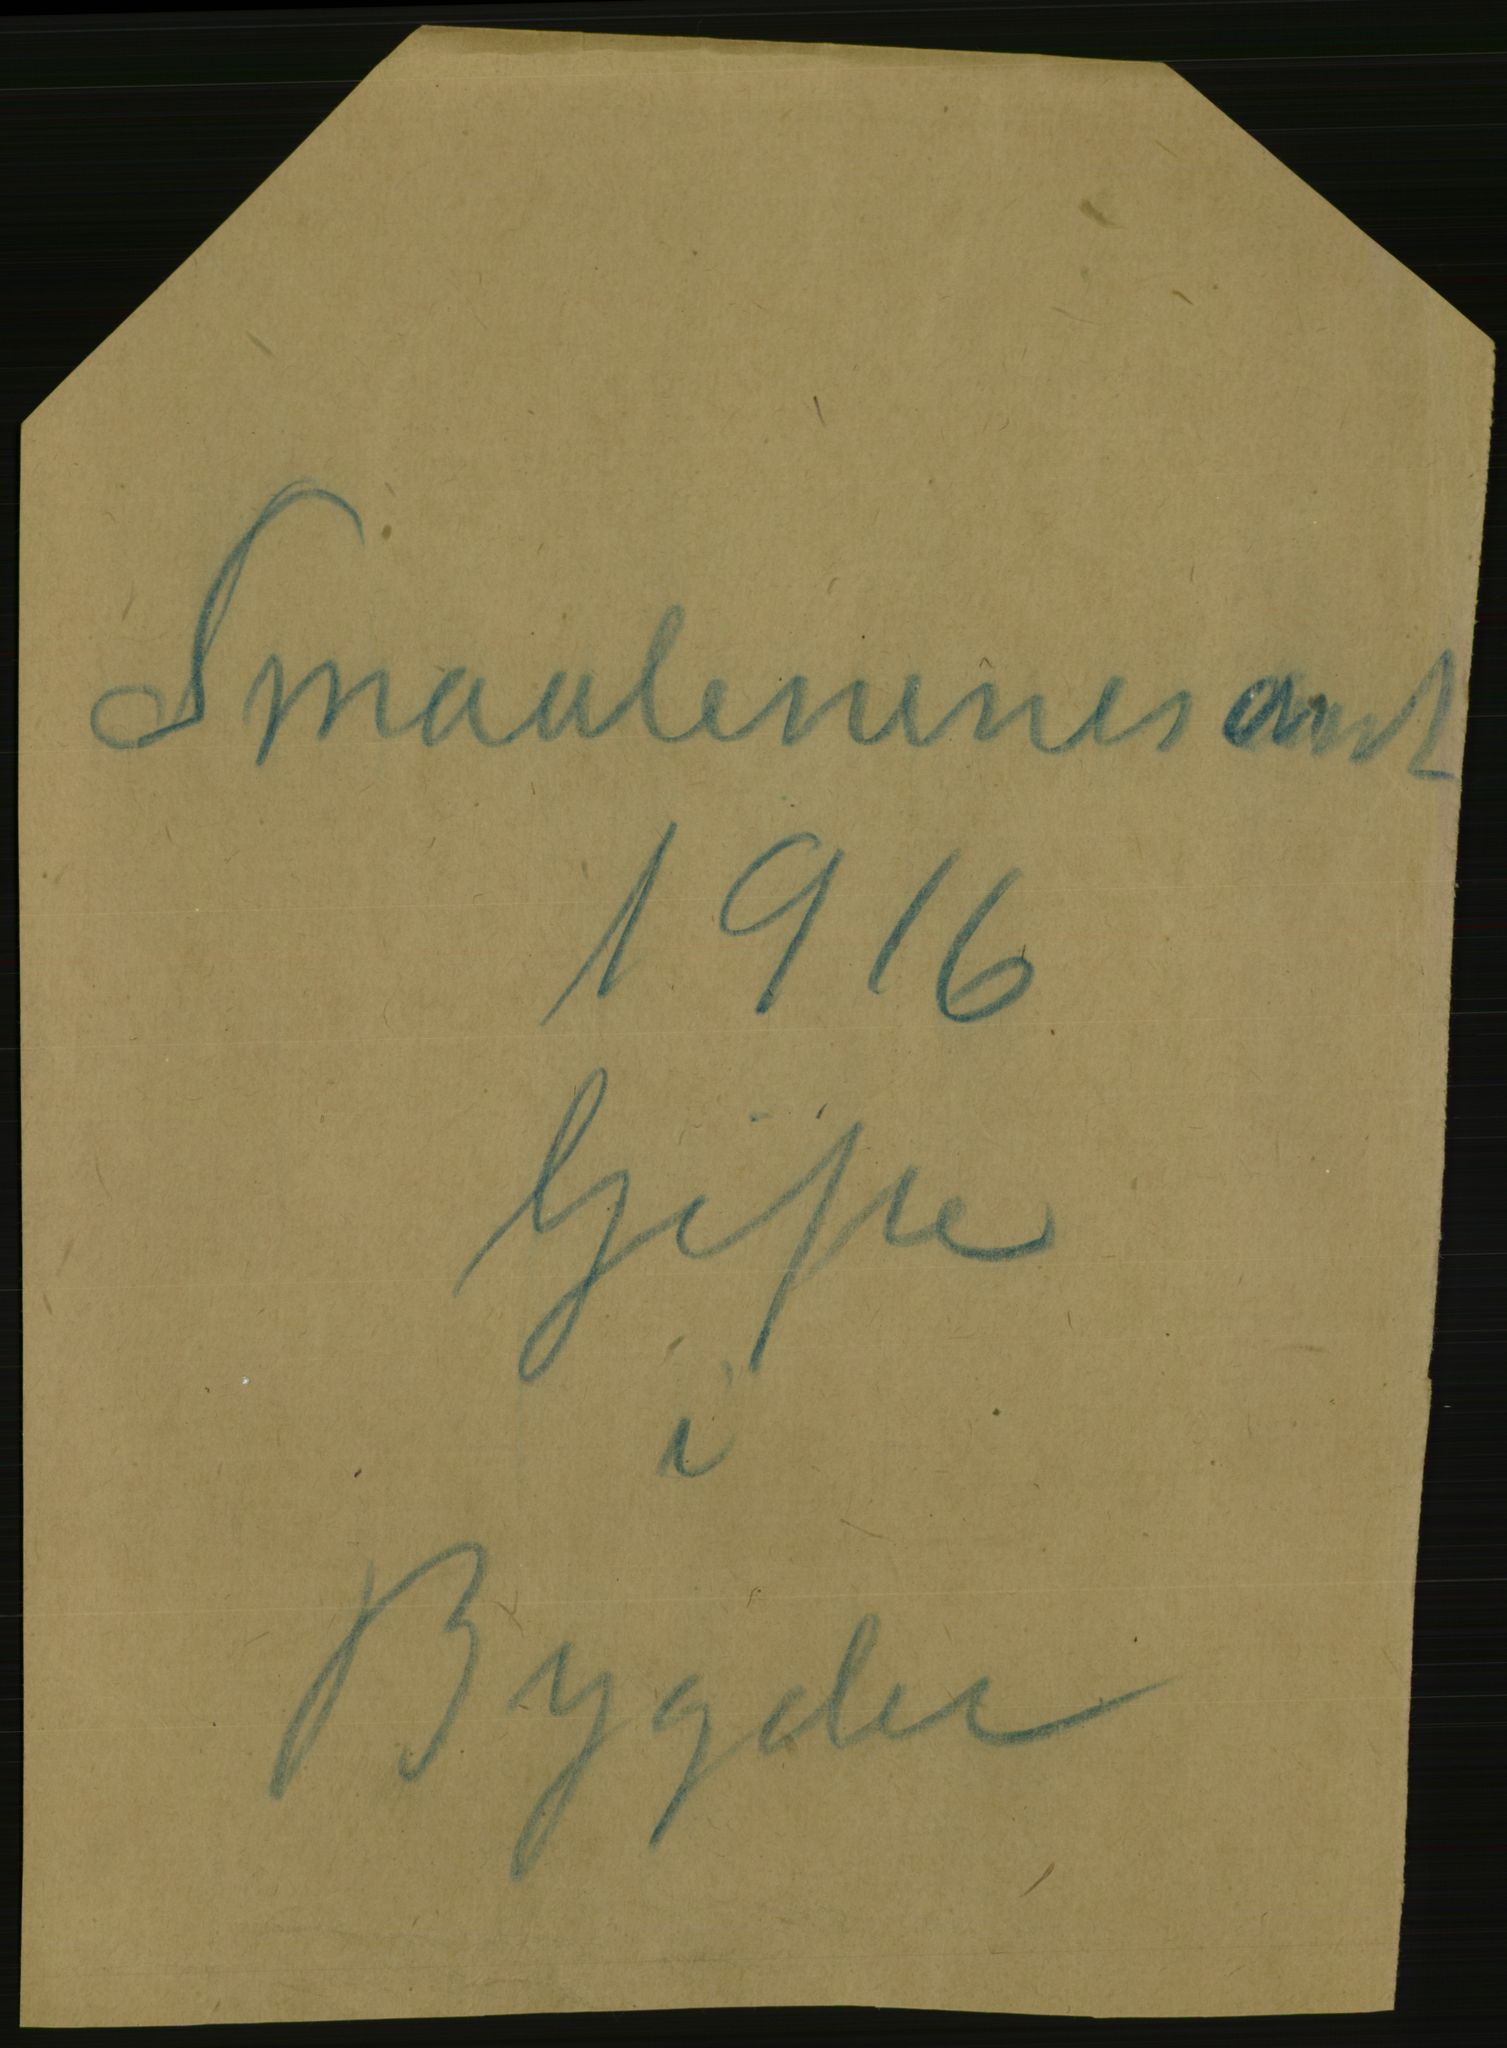 Smaalenenes amt
1916
Gifte
i
Bygder